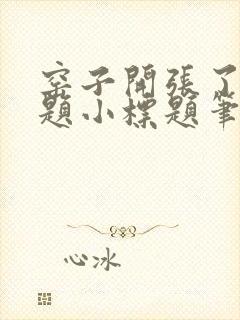 窑子開張了
題小標題筆
心冰